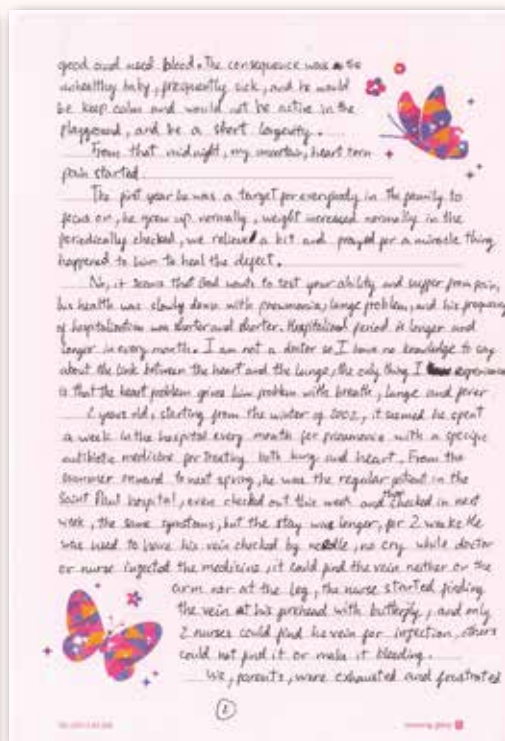 good and used blood. The consequence was
unhealthy baby, frequently sick, and he would
be keep calm and would not be active in the
playground, and be a short longevity.
From that midnight, my uncertain, heart torn
pain started
The first year he was a target for everybody in the family to
focus on, he grew up normally, weight increased normally in the
periodically checked, we relieved a bit and prayed for a miracle thing
happened to him to heal the defect.
No, it seems that God wants to test your ability and suffer from pain,
his health was slowly dense with pneumonia, lunge problem, and his frequency
of hospitalization was shorter and shorter. Hospitalized period is longer and
longer in every month. I am not a doctor so I have no knowledge to say
about the link between the heart and the lungs, the only thing I experienced
is that the heart problem gives him problem with breath, lunge and fever
2 years old, starting from the winter of 2002, it seemed he spent
a week in the hospital every month for pneumonia with a specific
antibiotic medicine for treating both lung and heart. From the
summer onward to next spring, he was the regular patient in the
Saint Paul hospital, even checked out this week and then checked in next
week, the same symptoms, but the stay was longer, for 2 weeks. He
was used to have his vein checked by needle, no cry while doctor
or nurse injected the medicine, it could find the vein neither on the
arm nor at the leg, the nurse started finding
the vein at his forehead with butterfly, and only
2 nurses could find his vein for injection, others
could not find it or make it bleeding.
We, parents, were exhausted and frustrated